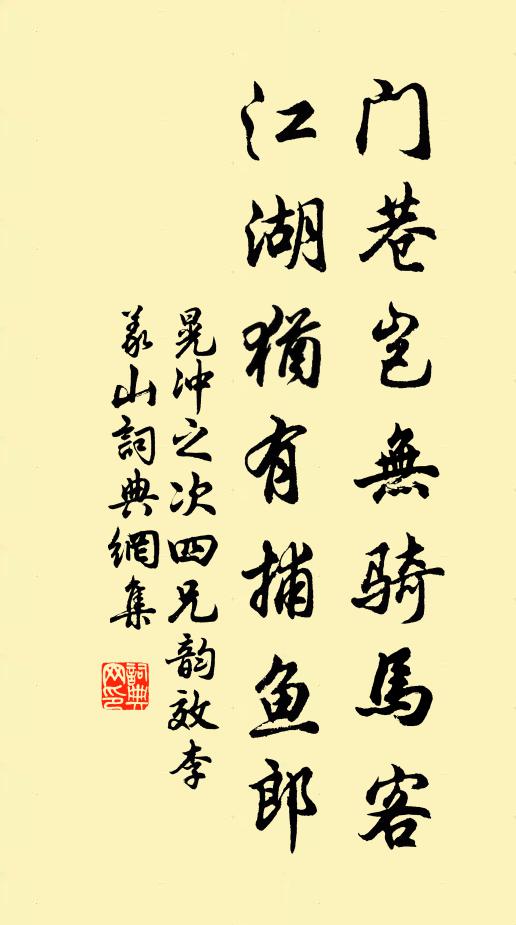 门巷岂無骑馬客
江湖猶有捕鱼郎
晁冲之次四兄韵效李
義山詞典網集
詞典
网印